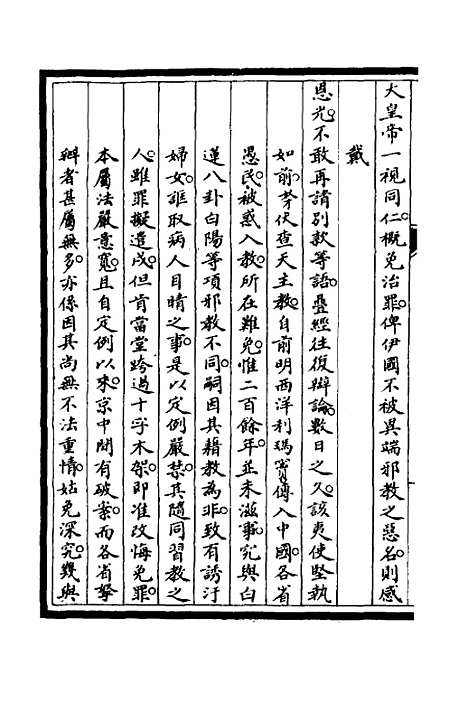 大皇帝一視同仁。概免治罪。俾伊國不被異端邪教之惡名。則感
戴
恩光。不敢再請別款等語。疊經往復辯論。數日之久。該夷使堅執
如前。等伏查天主教。自前明西洋利瑪竇傳入中國。各省
愚民。被惑入教。所在難免。惟二百餘年。並未滋事。究與白
蓮八卦白陽等項邪教不同。嗣因其藉教為非。致有誘汙
婦女。誆取病人目睛之事。是以定例嚴禁。其隨同習教之
人。雖罪擬遣戍。但肯當堂跨過十字木架。即准改悔免罪。
本屬法嚴意寬。且自定例以來。京中間有破案。而各省拏
辦者甚屬無多。亦係因其尚無不法重情。姑免深究。幾與